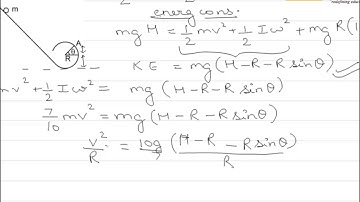 energ cons.
mgH = 1/2 mv² + 1/2 Iω² + mg R(1
KE = mg(H-R-R sinθ)
mv² + 1/2 Iω² = mg (H-R-R sinθ)
7/10 mv² = mg(H-R-R sinθ)
v²/R = 10g/7 (H-R-R sinθ)/R
m
A
R
θ